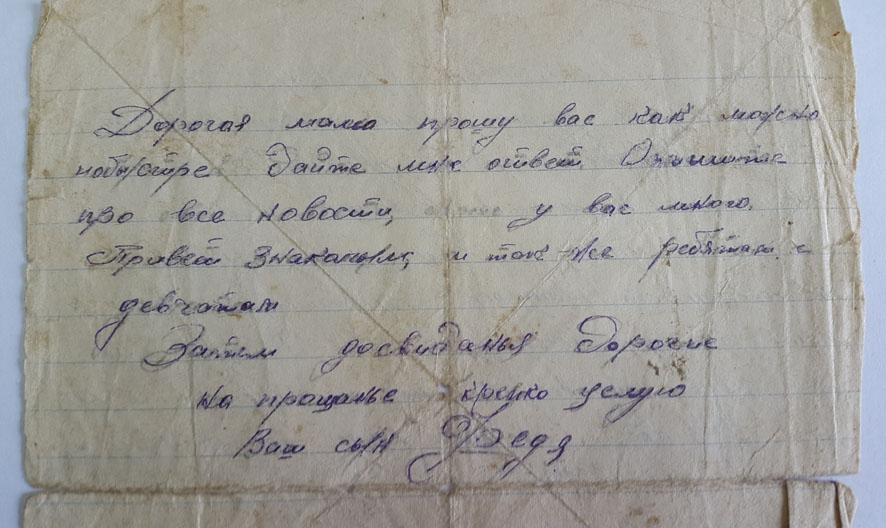 Дорогая мама прошу вас как можно
побыстре дайте мне ответ. Опишите
про все новости, у вас много.
Привет знакомым, и так же ребятам и
девчатам
Затем досвиданья дорогие
на прощанье крепко целую
Ваш сын Федя